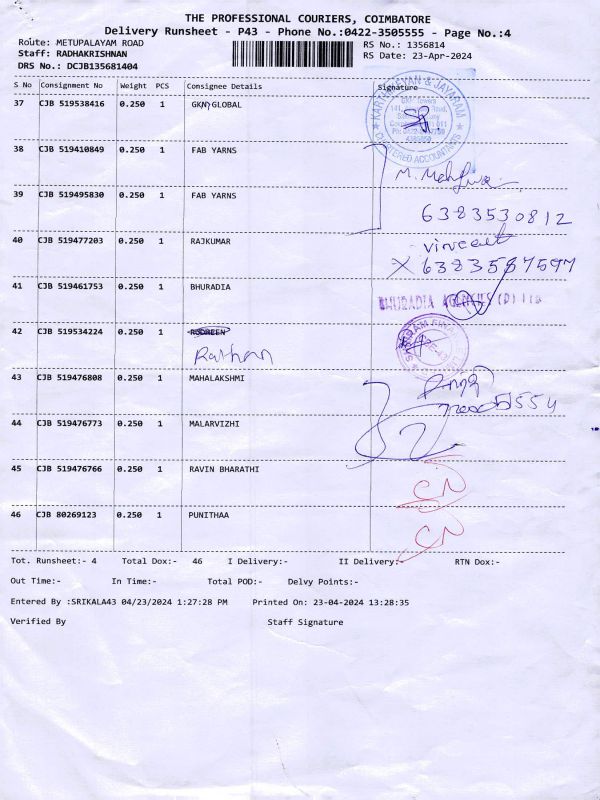 THE PROFESSIONAL COURIERS, COIMBATORE
Delivery Runsheet - P43 - Phone No.:0422-3505555 - Page No.:4
Route: METUPALAYAM ROAD
RS No.: 1356814
Staff: RADHAKRISHNAN
RS Date: 23-Apr-2024
DRS No.: DCJB135681404
S No Consignment No Weight PCS Consignee Details Signature
37 CJB 519538416 0.250 1 GKN GLOBAL
& JAYARAM
CHARTERED ACCOUNTANTS
38 CJB 519410849 0.250 1 FAB YARNS
M.
39 CJB 519495830 0.250 1 FAB YARNS
6383530812
40 CJB 519477203 0.250 1 RAJKUMAR
vincent
41 CJB 519461753 0.250 1 BHURADIA
BHURADIA AGENCIES (P) LTD
42 CJB 519534224 0.250 1
43 CJB 519476808 0.250 1 MAHALAKSHMI
44 CJB 519476773 0.250 1 MALARVIZHI
45 CJB 519476766 0.250 1 RAVIN BHARATHI
46 CJB 80269123 0.250 1 PUNITHAA
Tot. Runsheet:- 4 Total Dox:- 46 I Delivery:- II Delivery:- RTN Dox:-
Out Time:- In Time:- Total POD:- Delvy Points:-
Entered By :SRIKALA43 04/23/2024 1:27:28 PM Printed On: 23-04-2024 13:28:35
Verified By Staff Signature